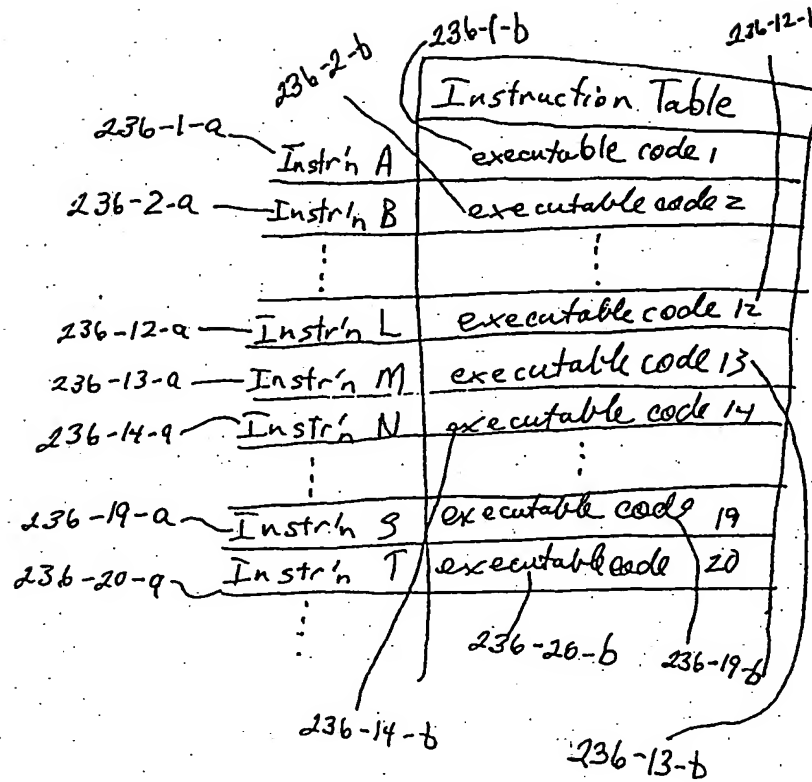 236-1-b
236-12-
236-2-b
Instruction Table
236-1-a Instr'n A executable code 1
236-2-a Instr'n B executable code 2
236-12-a Instr'n L executable code 12
236-13-a Instr'n M executable code 13
236-14-a Instr'n N executable code 14
236-19-a Instr'n S executable code 19
236-20-a Instr'n T executable code 20
236-20-b 236-19-b
236-14-b
236-13-b